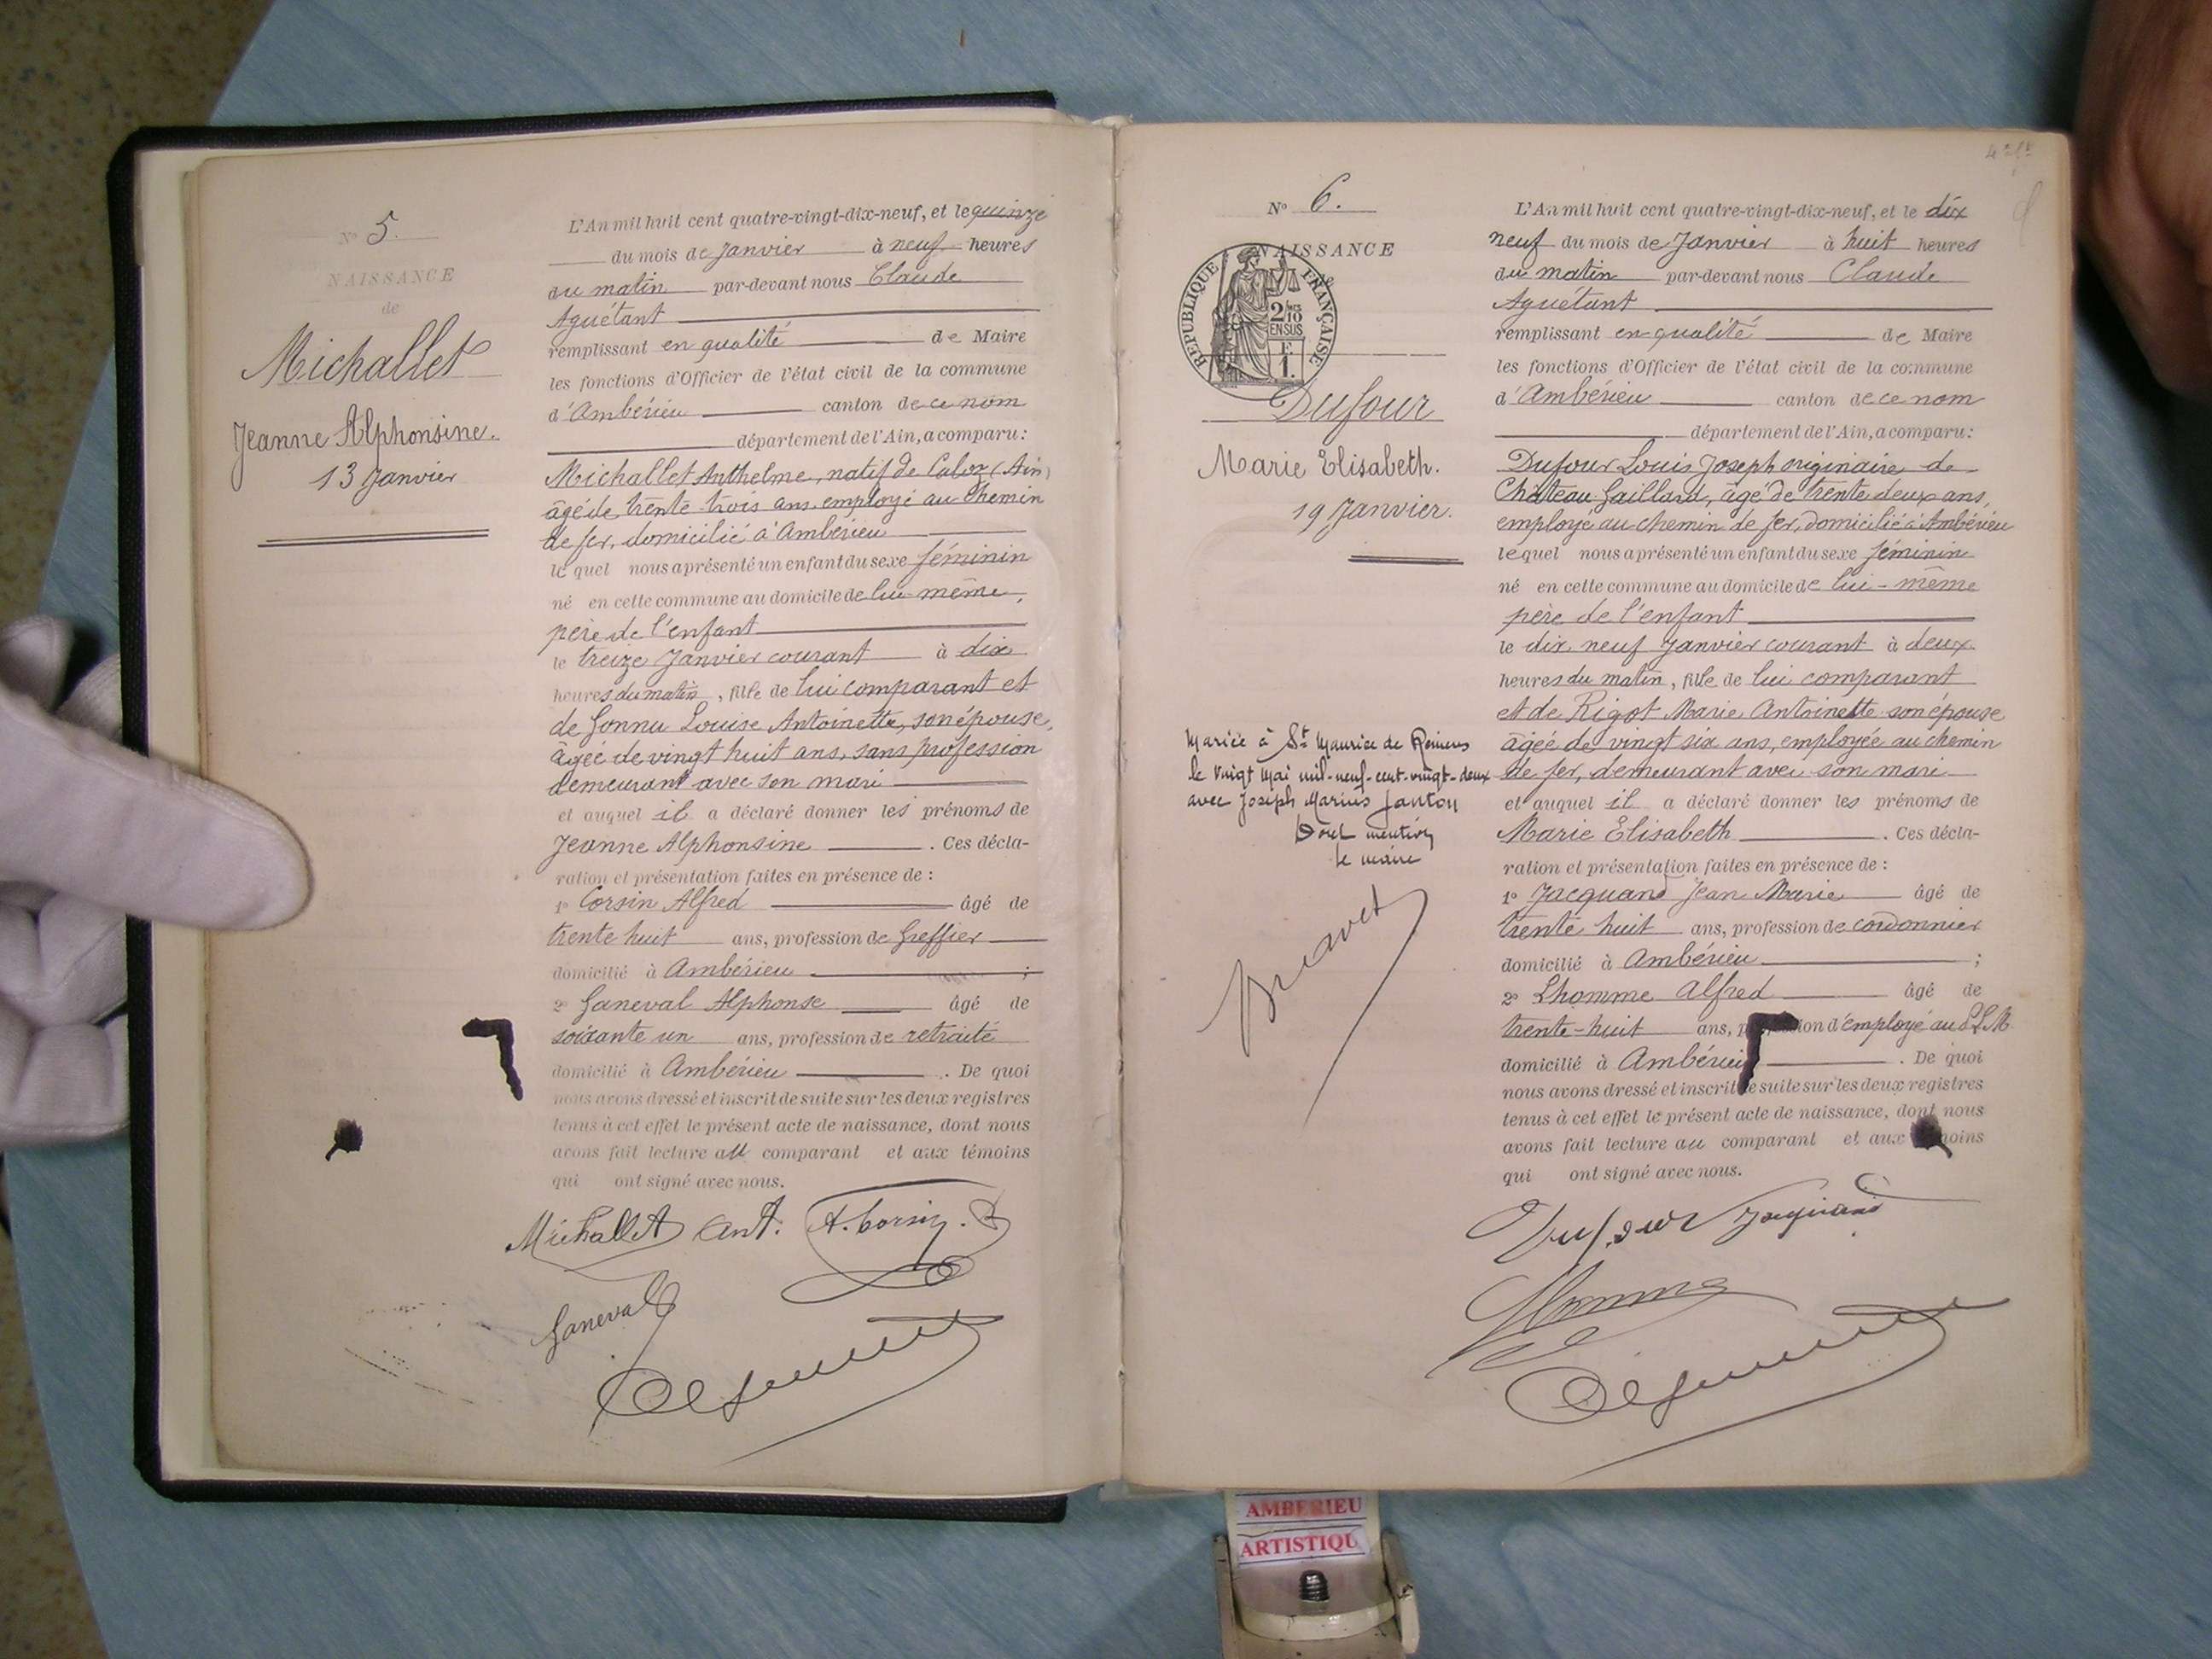 N° 5.
NAISSANCE
de
Michallet
Jeanne Alphonsine.
13 Janvier
L'An mil huit cent quatre-vingt-dix-neuf, et le quinze
du mois de Janvier à neuf heures
du matin par-devant nous Claude
Aguétant
remplissant en qualité de Maire
les fonctions d'Officier de l'état civil de la commune
d'Ambérieu canton de ce nom
département de l'Ain, a comparu:
Michallet Anthelme, natif de Culoz (Ain)
âgé de trente-trois ans employé au Chemin
de fer, domicilié à Ambérieu
lequel nous a présenté un enfant du sexe féminin
né en cette commune au domicile de lui-même,
père de l'enfant
le treize Janvier courant à dix
heures du matin, fille de lui comparant et
de Gonnu Louise Antoinette, son épouse,
âgée de vingt huit ans, sans profession
demeurant avec son mari
et auquel il a déclaré donner les prénoms de
Jeanne Alphonsine. Ces décla-
ration et présentation faites en présence de :
1° Corsin Alfred âgé de
trente huit ans, profession de Greffier
domicilié à Ambérieu ;
2° Ganeval Alphonse âgé de
soixante un ans, profession de retraité
domicilié à Ambérieu. De quoi
nous avons dressé et inscrit de suite sur les deux registres
tenus à cet effet le présent acte de naissance, dont nous
avons fait lecture au comparant et aux témoins
qui ont signé avec nous.
Michallet Ant. A. Corsin.
Ganeval
N° 6.
NAISSANCE
RÉPUBLIQUE FRANÇAISE
2/10
EN SUS
F
1.
Dufour
Marie Elisabeth.
19 Janvier.
Mariée à St Maurice de Rémens
le vingt Mai mil-neuf-cent-vingt-deux
avec Joseph Marius Janton
Dont mention
le maire
Bravet
L'An mil huit cent quatre-vingt-dix-neuf, et le dix
neuf du mois de Janvier à huit heures
du matin par-devant nous Claude
Aguétant
remplissant en qualité de Maire
les fonctions d'Officier de l'état civil de la commune
d'Ambérieu canton de ce nom
département de l'Ain, a comparu:
Dufour Louis Joseph originaire de
Château-Gaillard, âgé de trente deux ans,
employé au chemin de fer, domicilié à Ambérieu
lequel nous a présenté un enfant du sexe féminin
né en cette commune au domicile de lui-même
père de l'enfant
le dix neuf Janvier courant à deux
heures du matin, fille de lui comparant
et de Rigot Marie Antoinette son épouse
âgée de vingt six ans, employée au chemin
de fer, demeurant avec son mari
et auquel il a déclaré donner les prénoms de
Marie Elisabeth. Ces décla-
ration et présentation faites en présence de :
1° Jacquand Jean Marie âgé de
trente huit ans, profession de cordonnier
domicilié à Ambérieu ;
2° Lhomme Alfred âgé de
trente-huit ans, profession d'employé au PLM
domicilié à Ambérieu. De quoi
nous avons dressé et inscrit de suite sur les deux registres
tenus à cet effet le présent acte de naissance, dont nous
avons fait lecture au comparant et aux témoins
qui ont signé avec nous.
Dufour Jacquand
Lhomme
AMBERIEU
ARTISTIQU